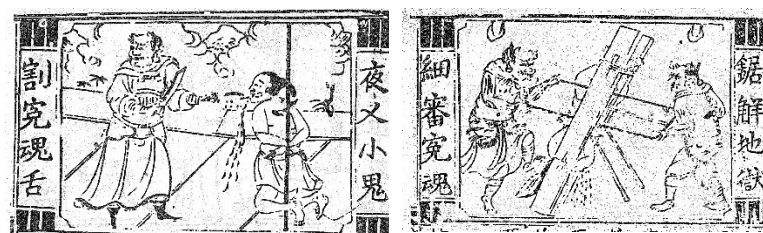 夜乂小鬼
割寃魂舌
鋸解地獄
細審寃魂